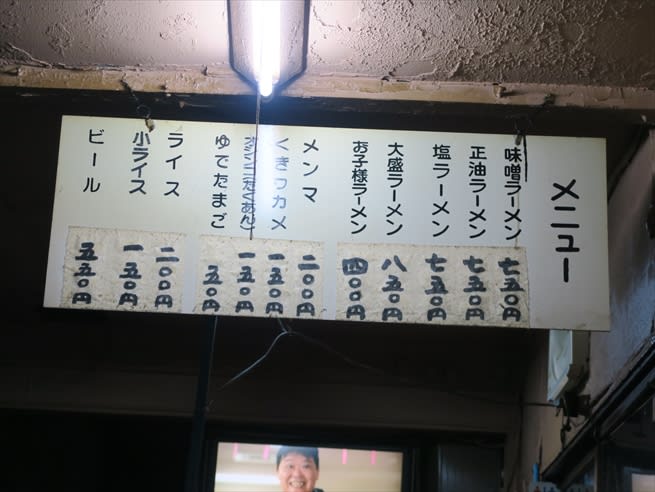 メニュー
味噌ラーメン 七五〇円
正油ラーメン 七五〇円
塩ラーメン 七五〇円
大盛ラーメン 八五〇円
お子様ラーメン 四〇〇円
メンマ 二〇〇円
くきワカメ 一五〇円
一五〇円
ゆでたまご 五〇円
ライス 二〇〇円
小ライス 一五〇円
ビール 五五〇円